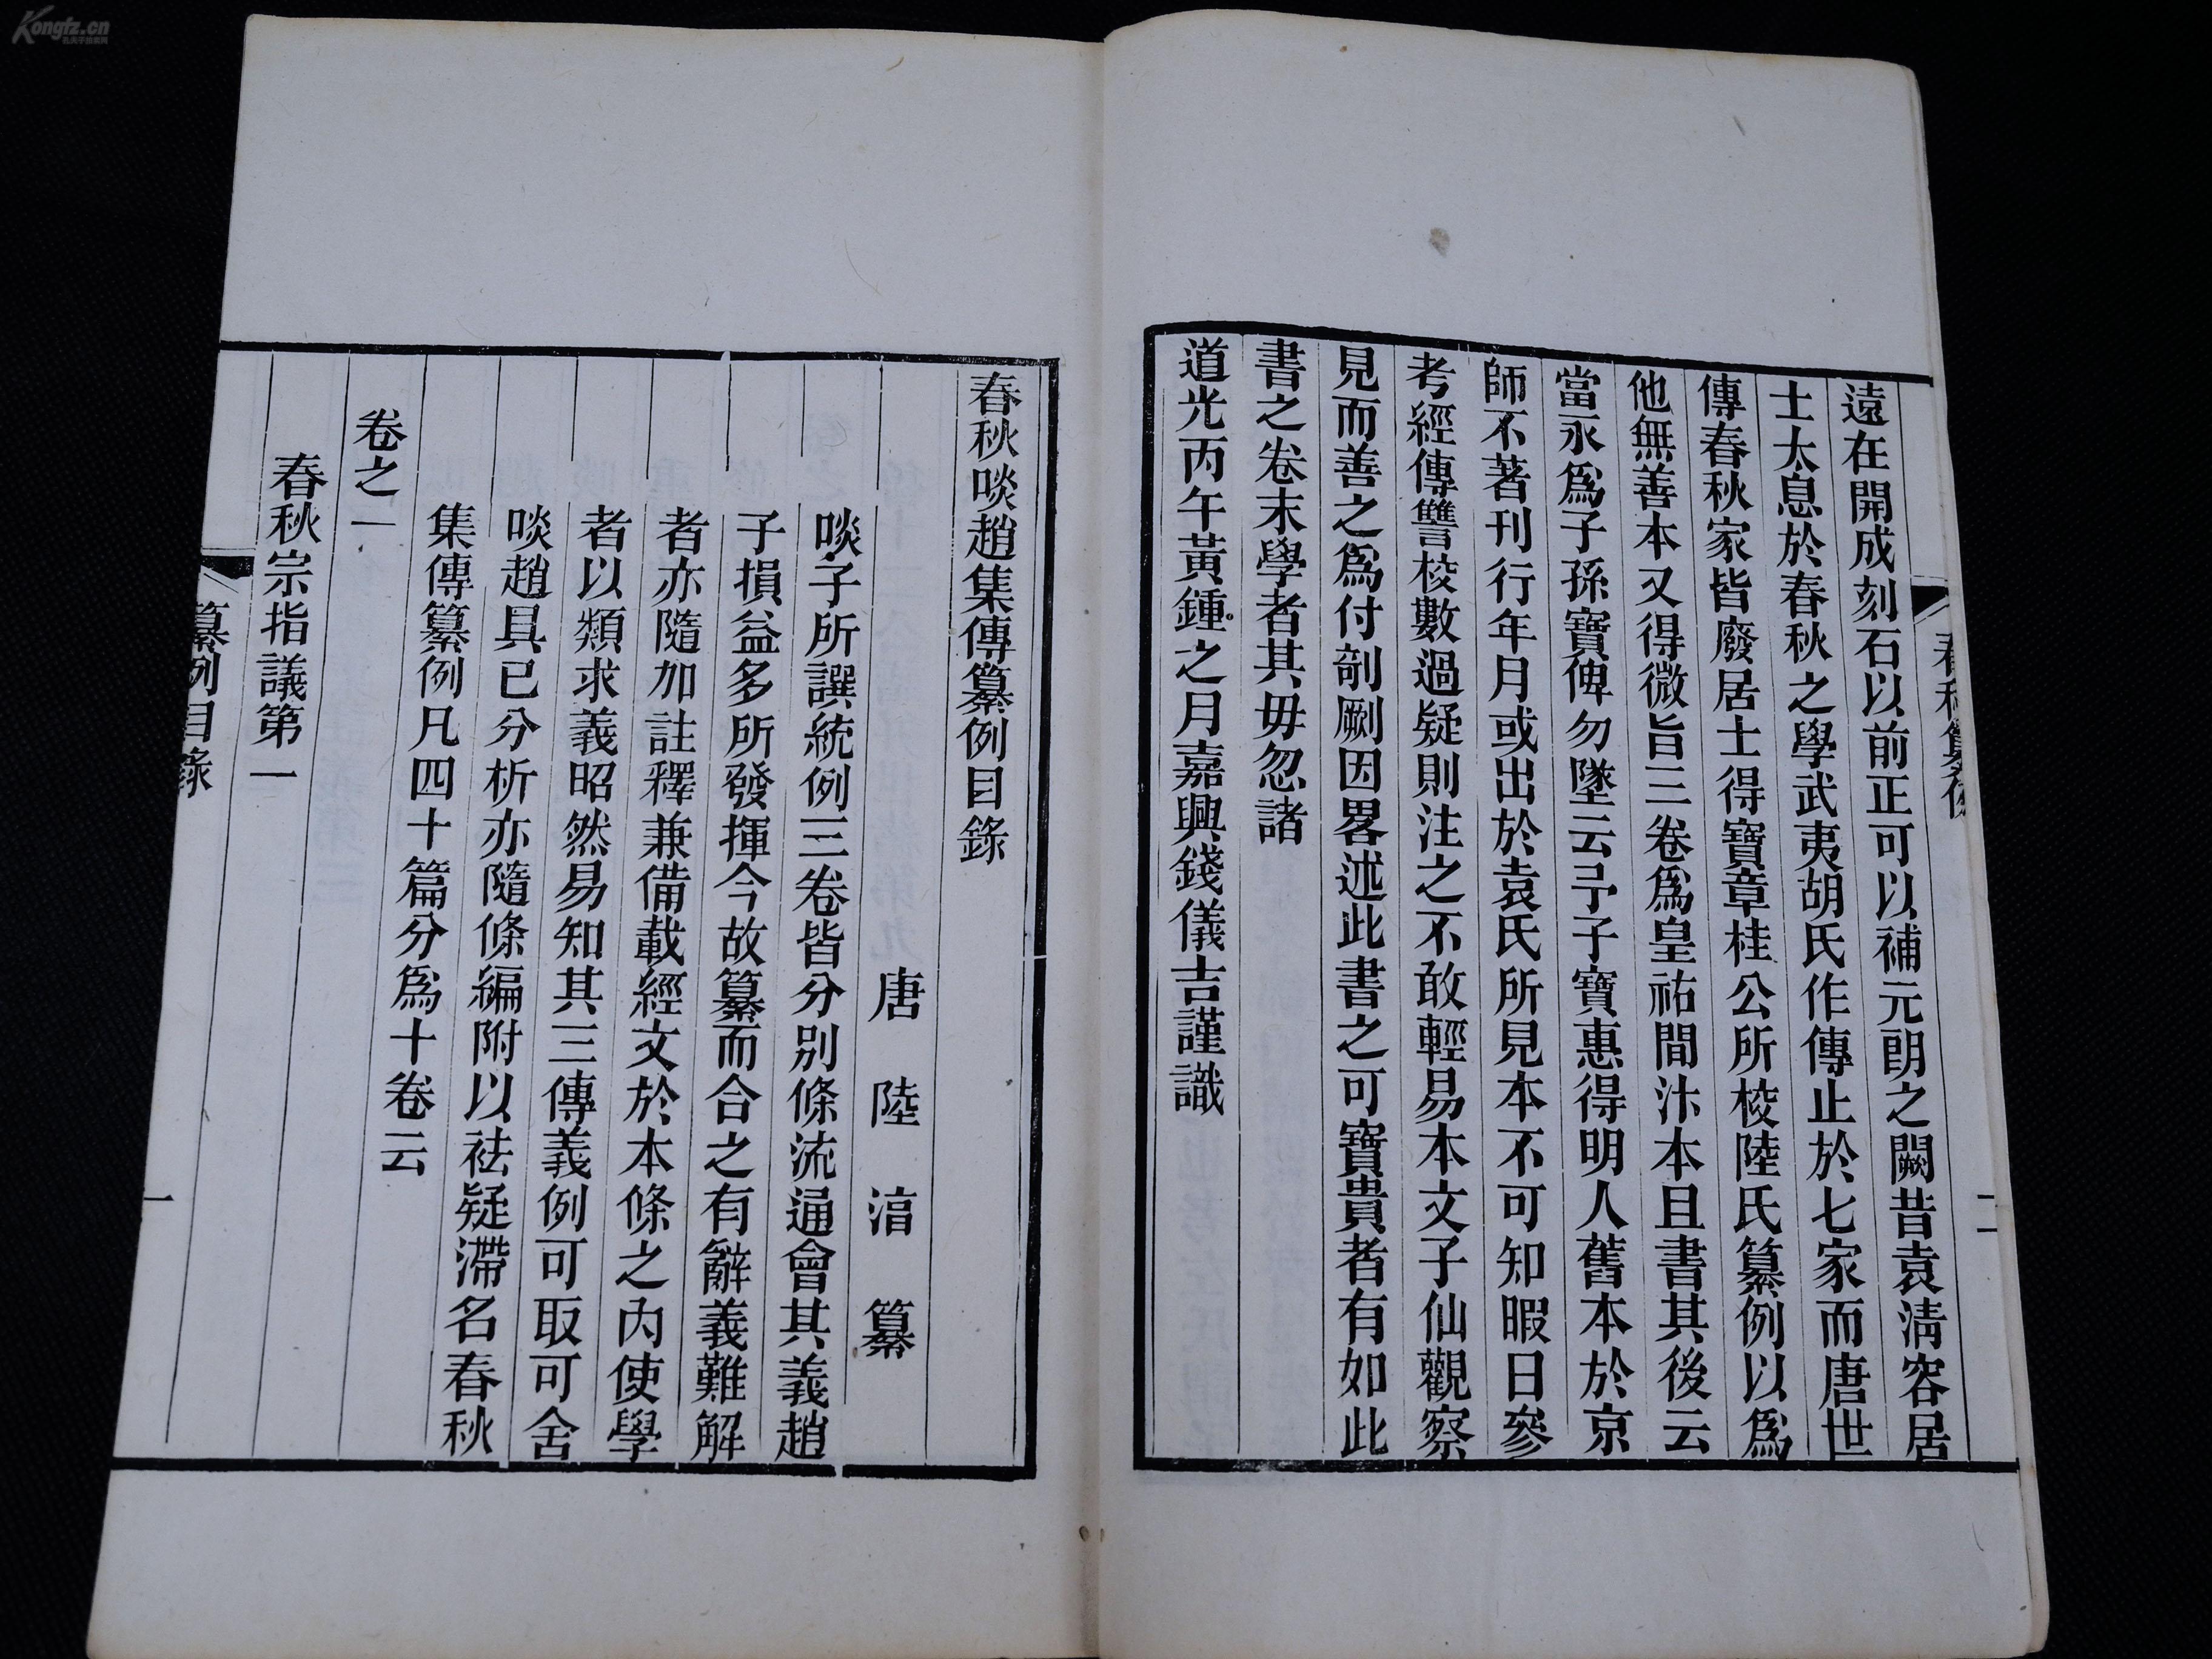 Kongfz.cn
遠在開成刻石以前正可以補元朗之闕昔袁淸容居
士太息於春秋之學武夷胡氏作傳止於七家而唐世
傳春秋家皆廢居士得寶章桂公所校陸氏纂例以爲
他無善本又得微旨三卷爲皇祐間汴本且書其後云
當永爲子孫寶俾勿墜云予子寶惠得明人舊本於京
師不著刊行年月或出於袁氏所見本不可知暇日參
考經傳讐校數過疑則注之不敢輕易本文子仙觀察
見而善之爲付剞劂因畧述此書之可寶貴者有如此
書之卷末學者其毋忽諸
道光丙午黃鍾之月嘉興錢儀吉謹識
春秋纂例
二
春秋啖趙集傳纂例目錄
唐陸淳纂
啖子所譔統例三卷皆分別條流通會其義趙
子損益多所發揮今故纂而合之有辭義難解
者亦隨加註釋兼備載經文於本條之內使學
者以類求義昭然易知其三傳義例可取可舍
啖趙具已分析亦隨條編附以祛疑滯名春秋
集傳纂例凡四十篇分爲十卷云
卷之一
春秋宗指議第一
纂例目錄
一